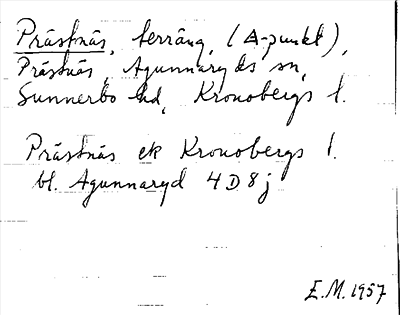 Prästnäs, terräng, (Δ-punkt),
Prästnäs, Agunnaryds sn,
Sunnerbo hd, Kronobergs l.
Prästnäs ek Kronobergs l.
bl. Agunnaryd 4D8j
E.M. 1957